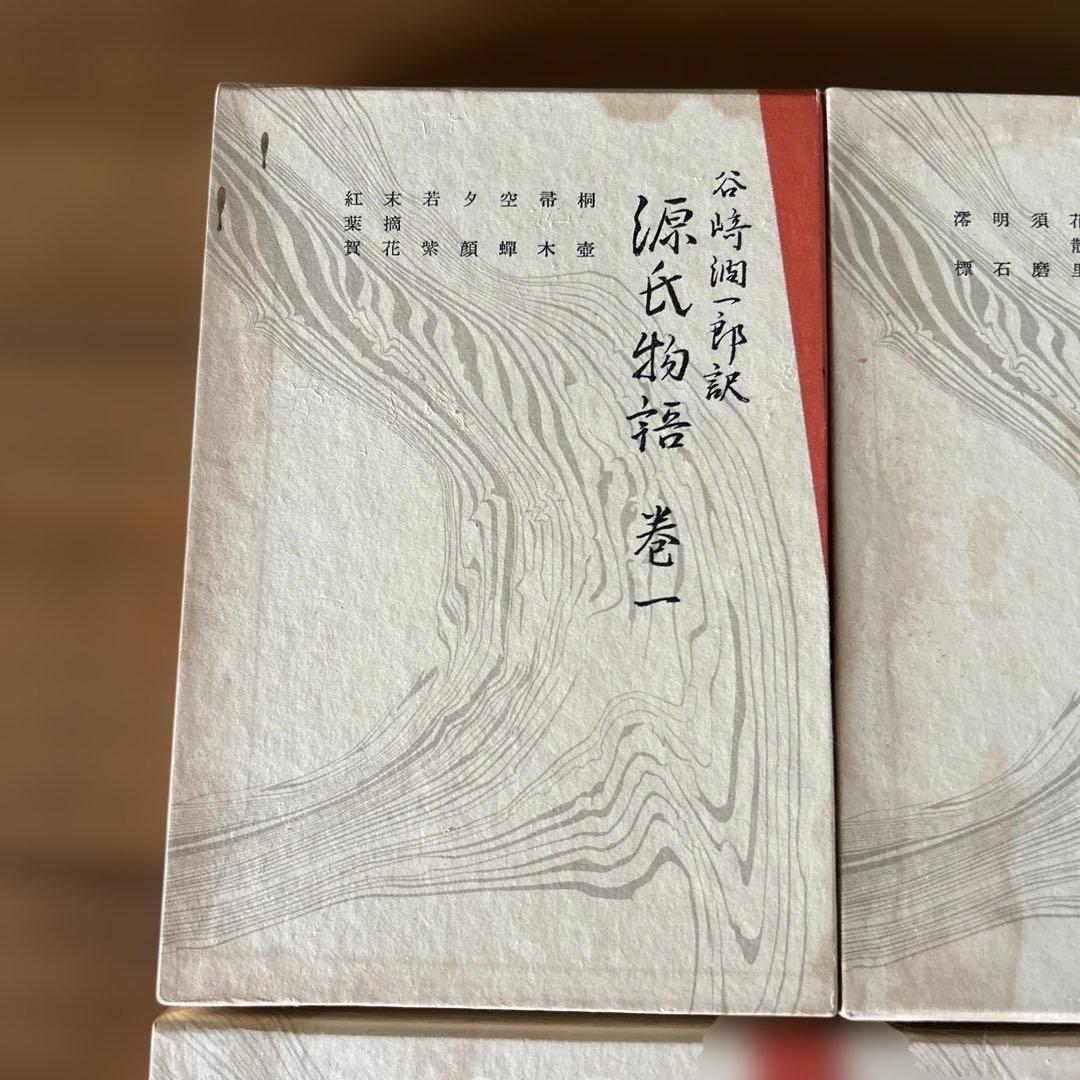 谷崎潤一郎訳
源氏物語 巻一
桐壺
帚木
空蟬
夕顔
若紫
末摘花
紅葉賀
須磨
明石
澪標